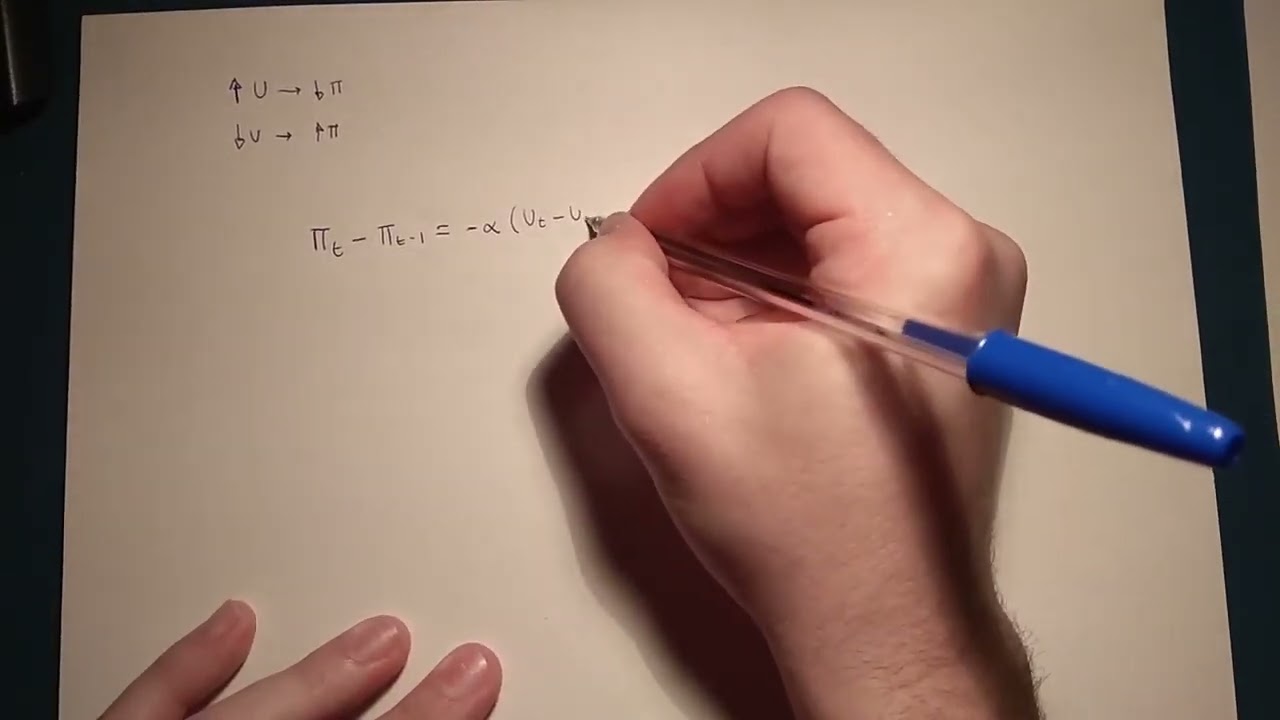 ↑ U → ↓ π
↓ U → ↑ π
π_t − π_{t-1} = −α (U_t − U